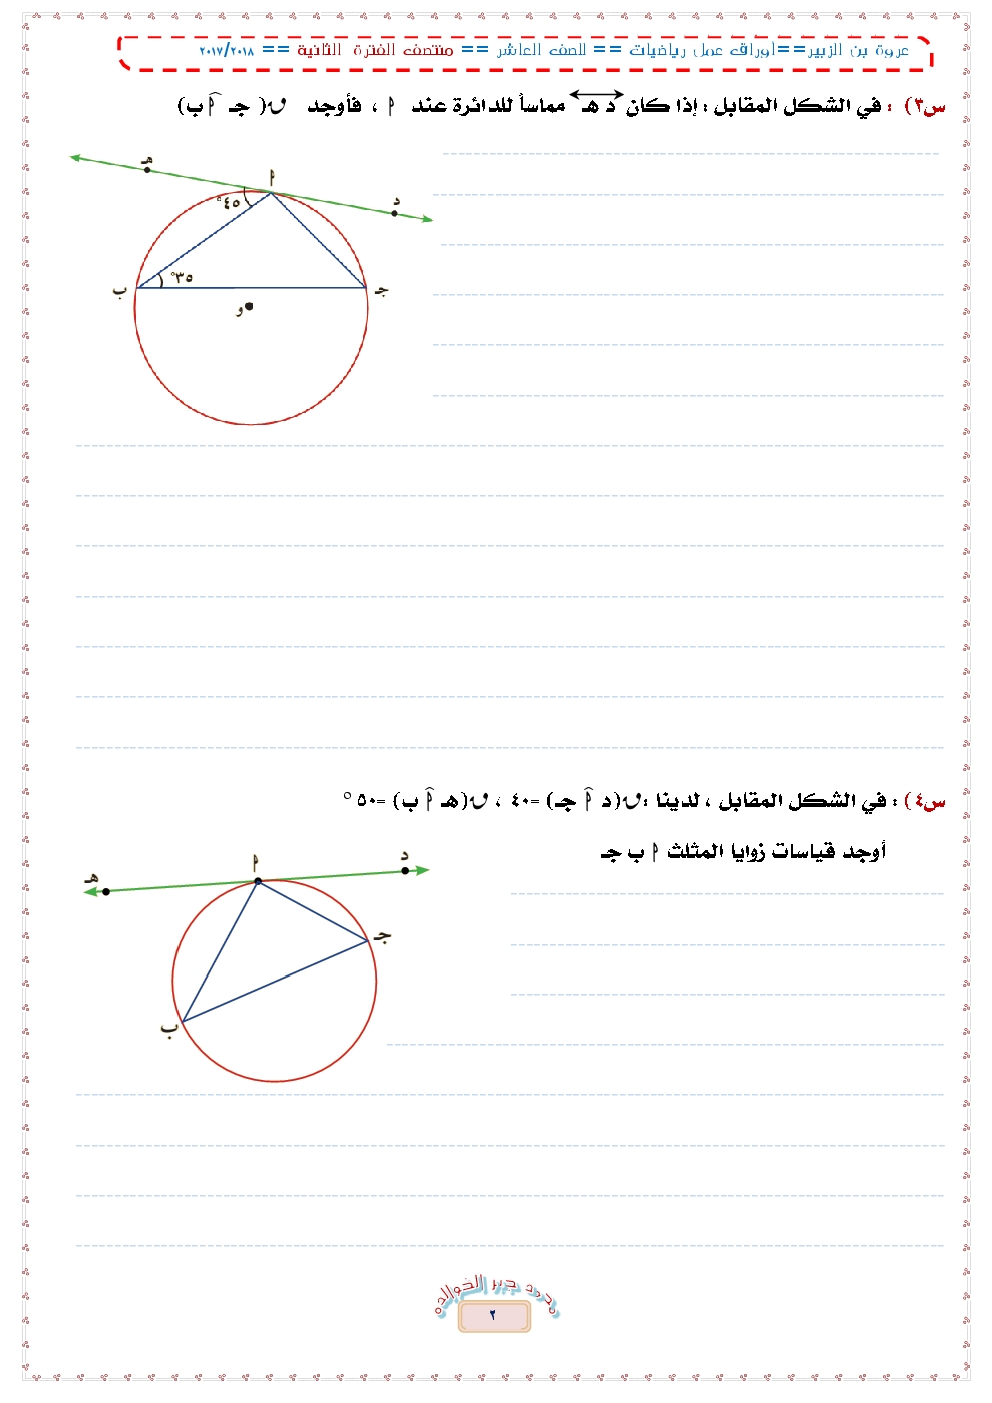 عروة بن الزبير==أوراق عمل رياضيات == للصف العاشر == منتصف الفترة الثانية == ٢٠١٧/٢٠١٨
س٣) : في الشكل المقابل : إذا كان د هـ مماساً للدائرة عند أ ، فأوجد ق( جـ أ ب)
هـ
أ
د
٤٥°
٣٥°
ب
جـ
و
س٤) : في الشكل المقابل ، لدينا :ق(د أ جـ) =٤٠ ، ق(هـ أ ب) =٥٠ °
أوجد قياسات زوايا المثلث أ ب جـ
أ
د
هـ
جـ
ب
محمد جبر الخوالده
٢